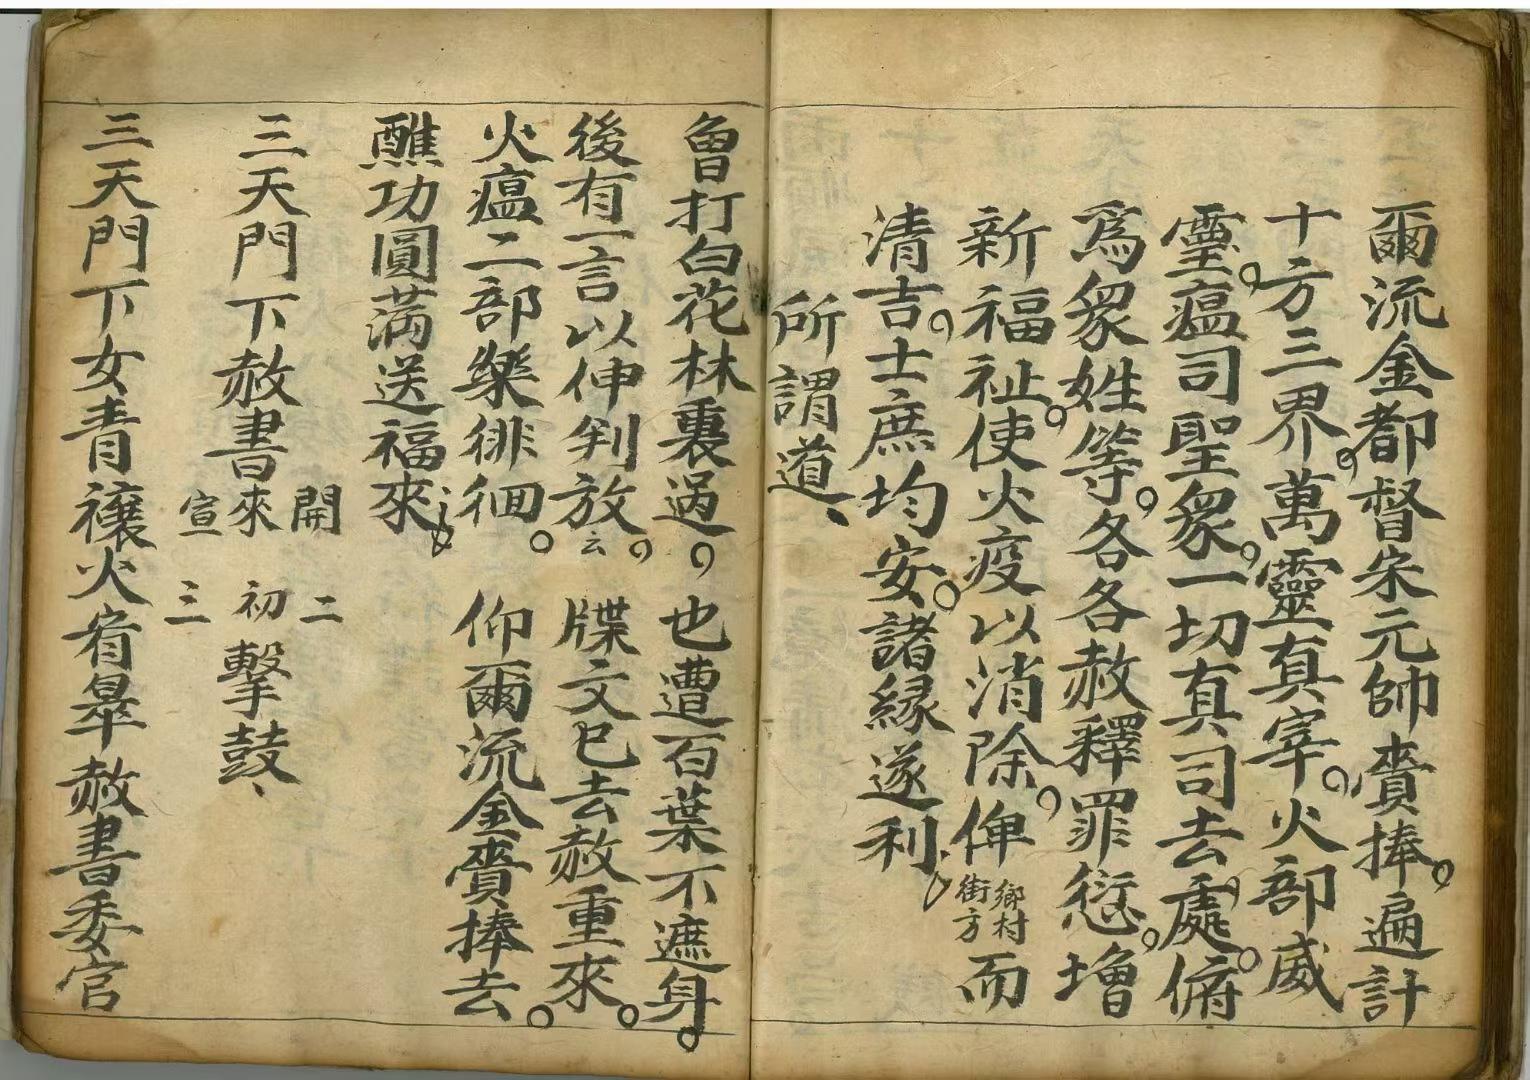 爾流金都督宋元帥賫捧遍計
十方三界萬靈真宰火部威
靈瘟司聖衆一切真司去處俯
爲衆姓等各各赦釋罪愆增
新福祉使火疫以消除俾鄉村街方而
清吉士庶均安諸緣遂利
所謂道
曾打白花林裏過也遭百葉不遮身
後有一言以伸判放云牒文已去赦重來
火瘟二部樂徘徊仰爾流金賫捧去
醮功圓滿送福來
三天門下赦書來開宣初二三擊鼓
三天門下女青禳火宥辠赦書委官